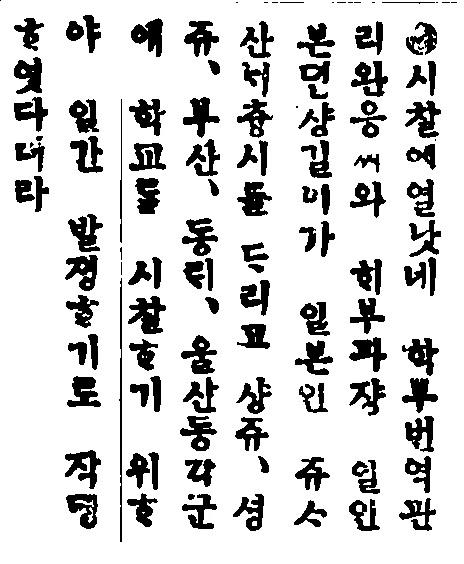 시찰에열낫네 학부번역관
리완응씨와 ᄒᆡ부파쟉 일인
본뎐샹길이가 일본인 쥬ᄉᆞ
산셔츙시를 ᄃᆞ리고 샹쥬、셩
쥬、부산、동ᄅᆡ、울산동각군
에 학교를 시찰ᄒᆞ기 위ᄒᆞ
야 일간 발졍ᄒᆞ기로 작뎡
ᄒᆞ엿다더라